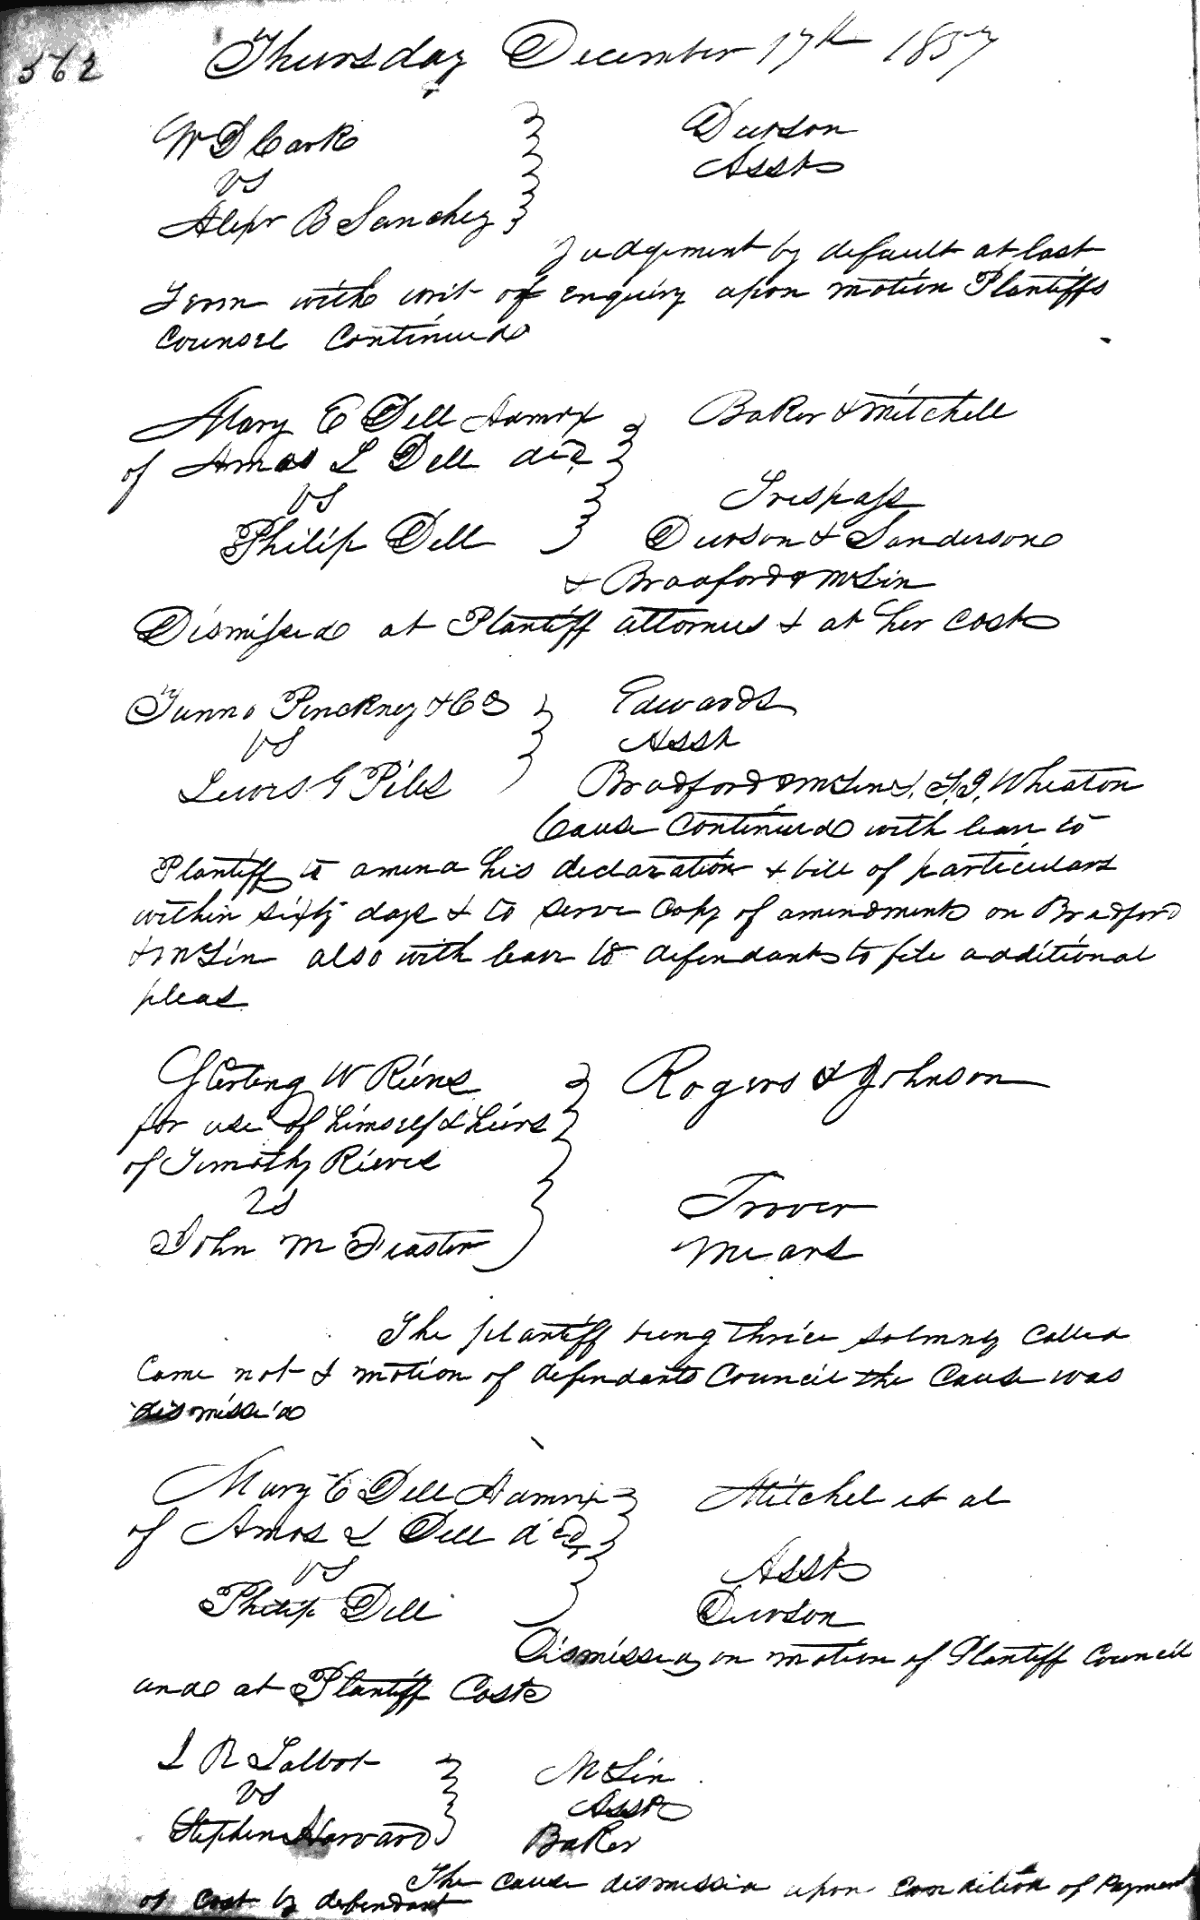 362 Thursday December 17th 1857
W D Cark Dewson
vs Asst
Alexr B Sanchez
Judgement by default at last
Term with writ of enquiry upon motion Plantiffs
Counsel Continued
Mary E Dell Admrx Baker & Mitchell
of Amos L Dell dcd
vs Trespass
Philip Dell Dewson & Sanderson
& Bradford & McLin
Dismissed at Plantiff attorneis & at her costs
Tunno Pinckney & Co Edwards
vs Asst
Lewis G Piles Bradford & McLin & Wheaton
Cause Continued with leave to
Plantiff to amend his declaration & bill of particulars
within sixty days & to serve Copy of amendments on Bradford
& McLin also with leave to defendants to file additional
pleas
Sterling W Rieves Rogers & Johnson
for use of himself & heirs
of Timothy Rieves
vs Trover
John M Feaster Means
The plantiff being thrice solmnly called
Came not & motion of defendants Council the Cause was
dismissed
Mary E Dell Admrx Mitchel et al
of Amos L Dell dcd
vs Asst
Philip Dell Dewson
Dismissed on motion of Plantiff Council
and at Plantiff Costs
R Talbot McLin
vs Asst
Stephen Harvard Baker
The cause dismissed upon Condition of Payment
of cost by defendant